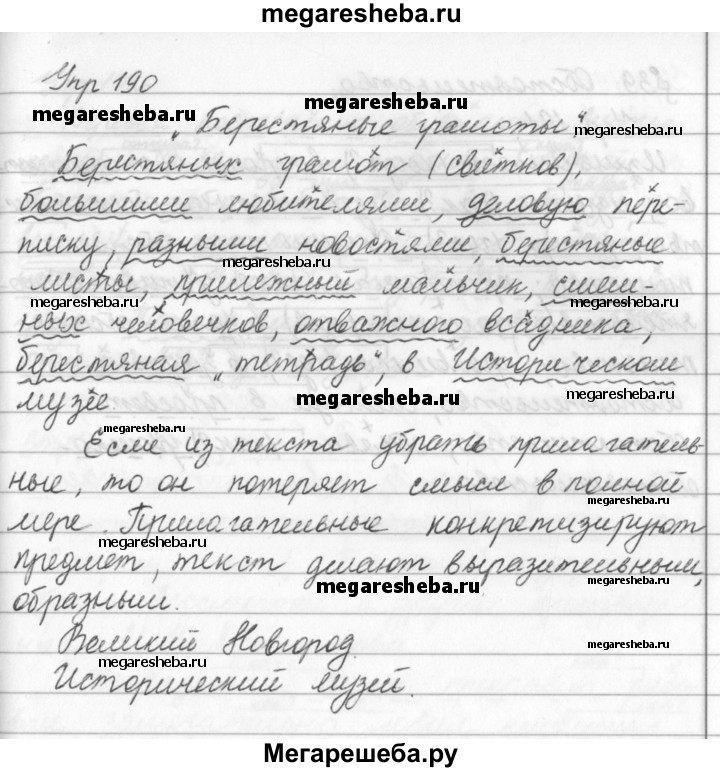 megaresheba.ru
Упр 190
megaresheba.ru megaresheba.ru
"Берестяные грамоты"
Берестяных грамот (свитков),
большими любителями, деловую пере-
писку, разными новостями, берестяные
megaresheba.ru
листы, прилежный мальчик, смеш-
megaresheba.ru megaresheba.ru megaresheba.ru
ных человечков, отважного всадника,
берестяная "тетрадь", в Историческом
музее. megaresheba.ru megaresheba.ru
megaresheba.ru
Если из текста убрать прилагатель-
ные, то он потеряет смысл в полной
megaresheba.ru
мере. Прилагательные конкретизируют
megaresheba.ru
предмет, текст делают выразительным,
megaresheba.ru megaresheba.ru
образным.
Великий Новгород.
megaresheba.ru megaresheba.ru
Исторический музей.
Мегарешеба.ру